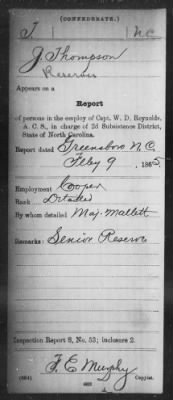 (CONFEDERATE.)
T NC
J. Thompson
Reserves
Appears on a
Report
of persons in the employ of Capt. W. D. Reynolds,
A. C. S., in charge of 2d Subsistence District,
State of North Carolina.
Report dated Greensboro N.C.
Feby 9, 1865
Employment Cooper
Rank Detailed
By whom detailed Maj. Mallett
Remarks: Senior Reserve
Inspection Report S, No. 53; inclosure 2.
F. E. Murphy
(654) Copyist.